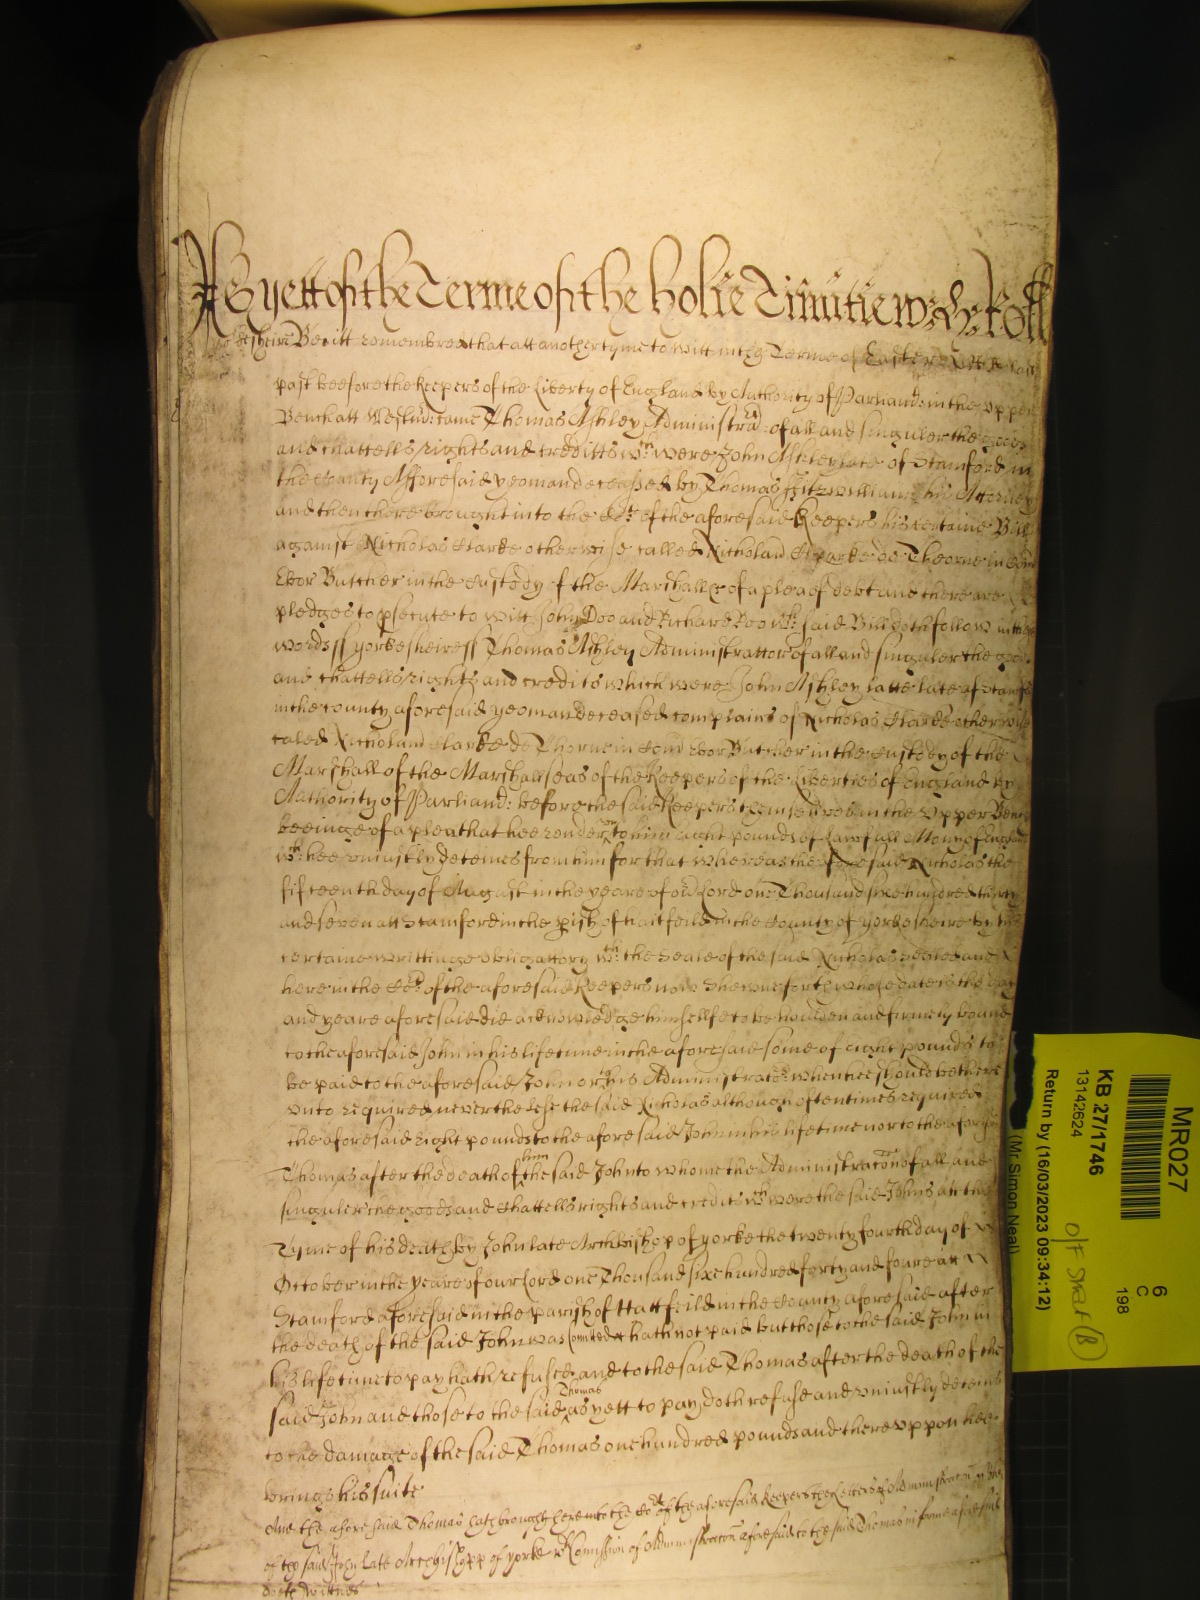 As yett of the Terme of the holie Trinitie Roll
Yorkesheire Bee itt remembred that att another tyme to witt in the Terme of Easter last
past beefore the Keepers of the Liberty of England by Authority of Parliamt: in the Upper
Bench att Westm: came Thomas Ashley Administra: of all and singuler the goods
and chattells rights and creditts wch: were John Ashley late of Stamford in
the County Afforesaid yeoman deceassed by Thomas Fitzwilliams his Attorney
and then there brought into the Cort of the aforesaid Keepers his certaine Bill
against Nicholas Clarke otherwise called Nicholaus Clarke de Thorne in Com
Ebor Butcher in the Custody of the Marshall &c of a plea of debt and there are
pledges to psecute to witt John Doo and Richard Roo wch: said Bill doth follow in these
words ss yorkesheire ss Thomas Ashley Administrattor of all and singuler the goods
and chattells rights and credits which were John Ashley latte late of Stamford
in the county aforesaid yeoman deceased complains of Nicholas Clarke otherwise
called Nicholaus Clarke de Thorne in Com Ebor Butcher in the Custody of the
Marshall of the Marshallseas of the Keepers of the Liberties of England by
Authority of Parliamt: before the said Keepers themselves in the Upper Bench
beeinge of a plea that hee render to him eight pounds of lawfull Mony of England
wch: hee uniustly deteines from him for that whereas the aforesaid Nicholas the
fifteenth day of August in the yeare of our Lord one Thousand sixe hundred thirty
and seven att Stamford in the pish of Hattfeild in the County of Yorkesheire by his
certaine writtinge obligattory wth: the Seale of the said Nicholas sealed and
here in the Cort of the aforesaid Keepers now shewne forth whose date is the day
and yeare aforesaid did acknowledge himselfe to be houlden and firmely bound
to the aforesaid John in his lifetime in the aforesaid some of eight pounds to
be paid to the aforesaid John or his Administrators when hee should be there
unto required neverthelesse the said Nicholas although oftentimes required
the aforesaid eight pounds to the aforesaid John in his lifetime nor to the aforesaid
Thomas after the death of him the said John to whome the Administracon of all and
singuler the goods and Chattells rights and credits wch were the said Johns att the
Tyme of his death by John late Archbishop of yorke the twenty fourth day of
October in the yeare of our Lord one Thousand sixe hundred forty and foure att
Stamford aforesaid in the parish of Hattfeild in the County aforesaid after
the death of the said John was Comitted hath not paid but those to the said John in
his lifetime to pay hath refused and to the said Thomas after the death of the
said John and those to the said Thomas as yett to pay doth refuse and uniustly deteins
to the damage of the said Thomas one hundred pounds and thereuppon hee
brings his suite
And the aforesaid Thomas hath brought here into the Cort of the aforesaid Keepers the Letters of Administracon
of the said John late Archbishopp of yorke Comission of Administracon aforesaid to the said Thomas in forme aforesaid
doeth wittnes
MR027
6
C
198
KB 27/1746
13142624
Return by (16/03/2023 09:34:12)
(Mr Simon Neal)